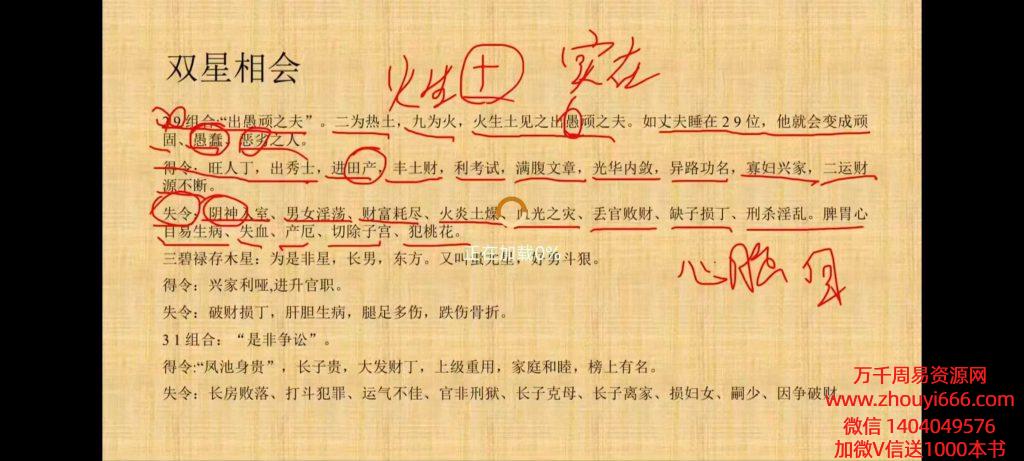 双星相会
火生土 实在
29组合:“出愚顽之夫”。二为热土，九为火，火生土见之出愚顽之夫。如丈夫睡在29位，他就会变成顽
固、愚蠢、恶劣之人。
得令：旺人丁，出秀士，进田产，丰土财，利考试，满腹文章，光华内敛，异路功名，寡妇兴家，二运财
源不断。
失令：阴神入室、男女淫荡、财富耗尽、火炎土燥、光之灾、丢官败财、缺子损丁、刑杀淫乱。脾胃心
目易生病、失血、产厄、切除子宫、犯桃花。
正在加载0%
三碧禄存木星：为是非星，长男，东方。又叫蚩尤星，好勇斗狠。
心脑
得令：兴家利哑,进升官职。
失令：破财损丁，肝胆生病，腿足多伤，跌伤骨折。
31组合：“是非争讼”。
得令:“凤池身贵”，长子贵，大发财丁，上级重用，家庭和睦，榜上有名。
失令：长房败落、打斗犯罪、运气不佳、官非刑狱、长子克母、长子离家、损妇女、嗣少、因争破财
万千周易资源网
www.zhouyi666.com
微信 1404049576
加微V信送1000本书